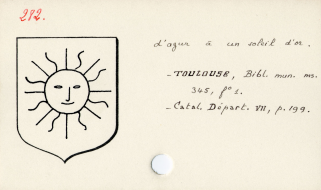 272.
d'azur à un soleil d'or.
- TOULOUSE, Bibl. mun. ms.
345, f° 1.
- Catal. Départ. VII, p. 199.